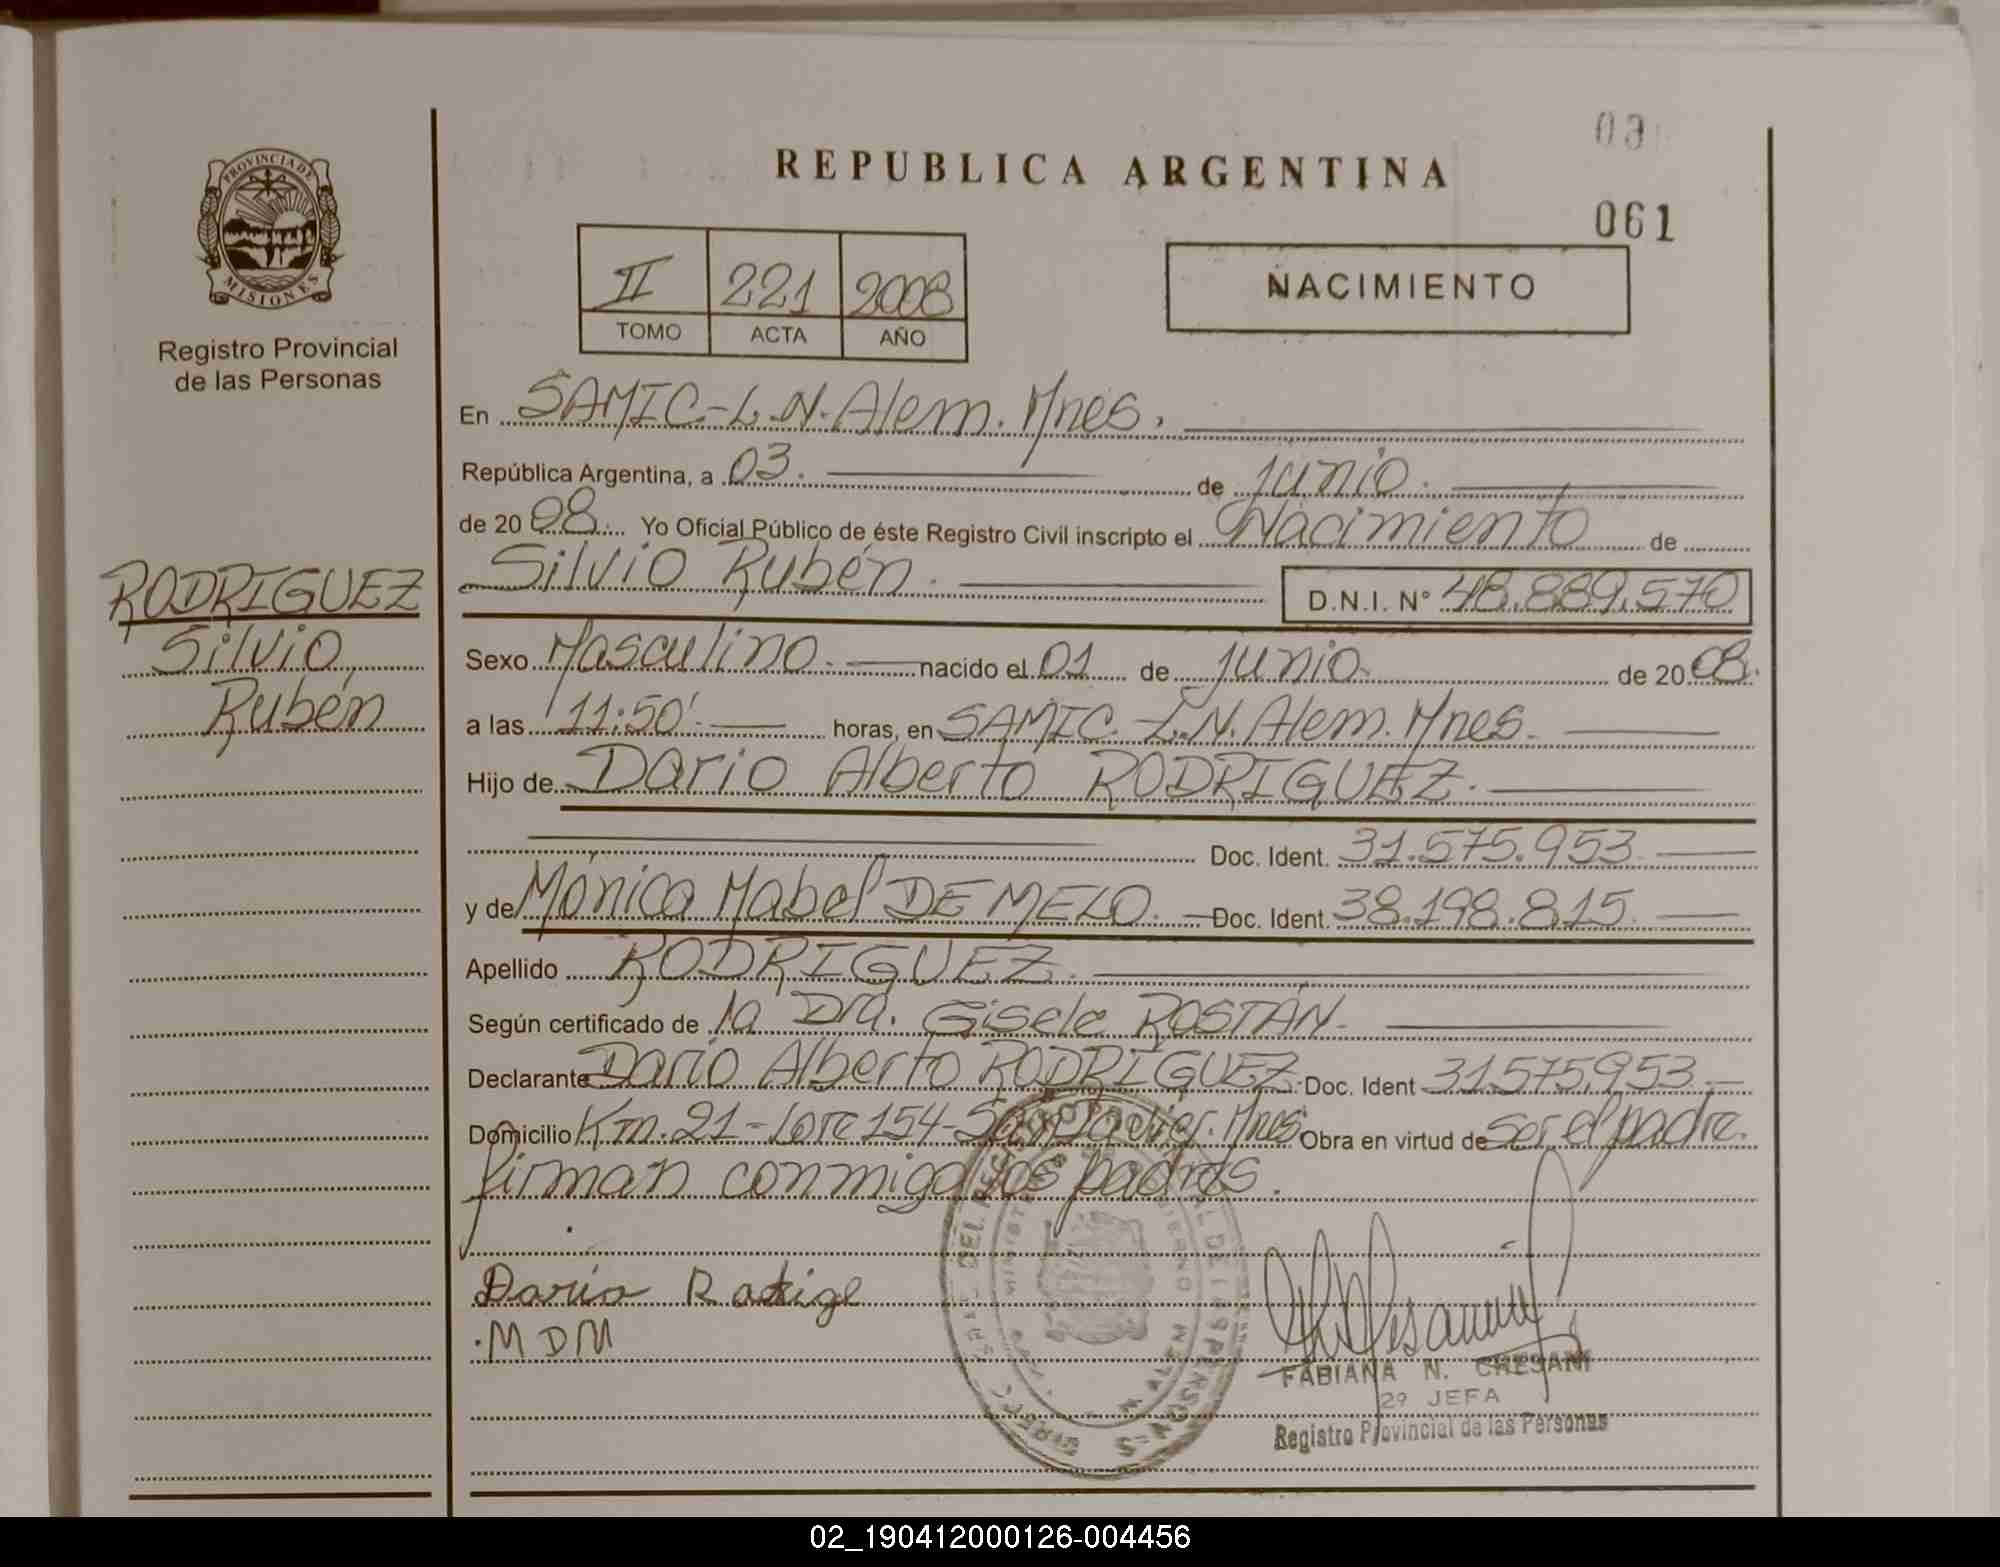 03
REPUBLICA ARGENTINA
061
PROVINCIA DE MISIONES
Registro Provincial
de las Personas
II 221 2008
TOMO ACTA AÑO
NACIMIENTO
En SAMIC-L.N.Alem.Mnes.
República Argentina, a 03. de junio.
de 20 08. Yo Oficial Público de éste Registro Civil inscripto el Nacimiento de
Silvio Rubén. D.N.I. N° 48.889.570
RODRIGUEZ
Silvio
Rubén
Sexo Masculino. nacido el 01 de junio. de 20 08.
a las 11:50'. horas, en SAMIC. L.N.Alem.Mnes.
Hijo de Dario Alberto RODRIGUEZ.
Doc. Ident. 31.575.953.
y de Mónica Mabel DE MELO. Doc. Ident. 38.198.815.
Apellido RODRIGUEZ.
Según certificado de la Dra. Gisele ROSTÁN.
Declarante Dario Alberto RODRIGUEZ. Doc. Ident 31.575.953.
Domicilio Km.21-lote 154-San Javier.Mnes Obra en virtud de ser el padre.
firman conmigo los padres.
Dario
MDM
FABIANA N. CRESANI
2º JEFA
Registro Provincial de las Personas
02_190412000126-004456